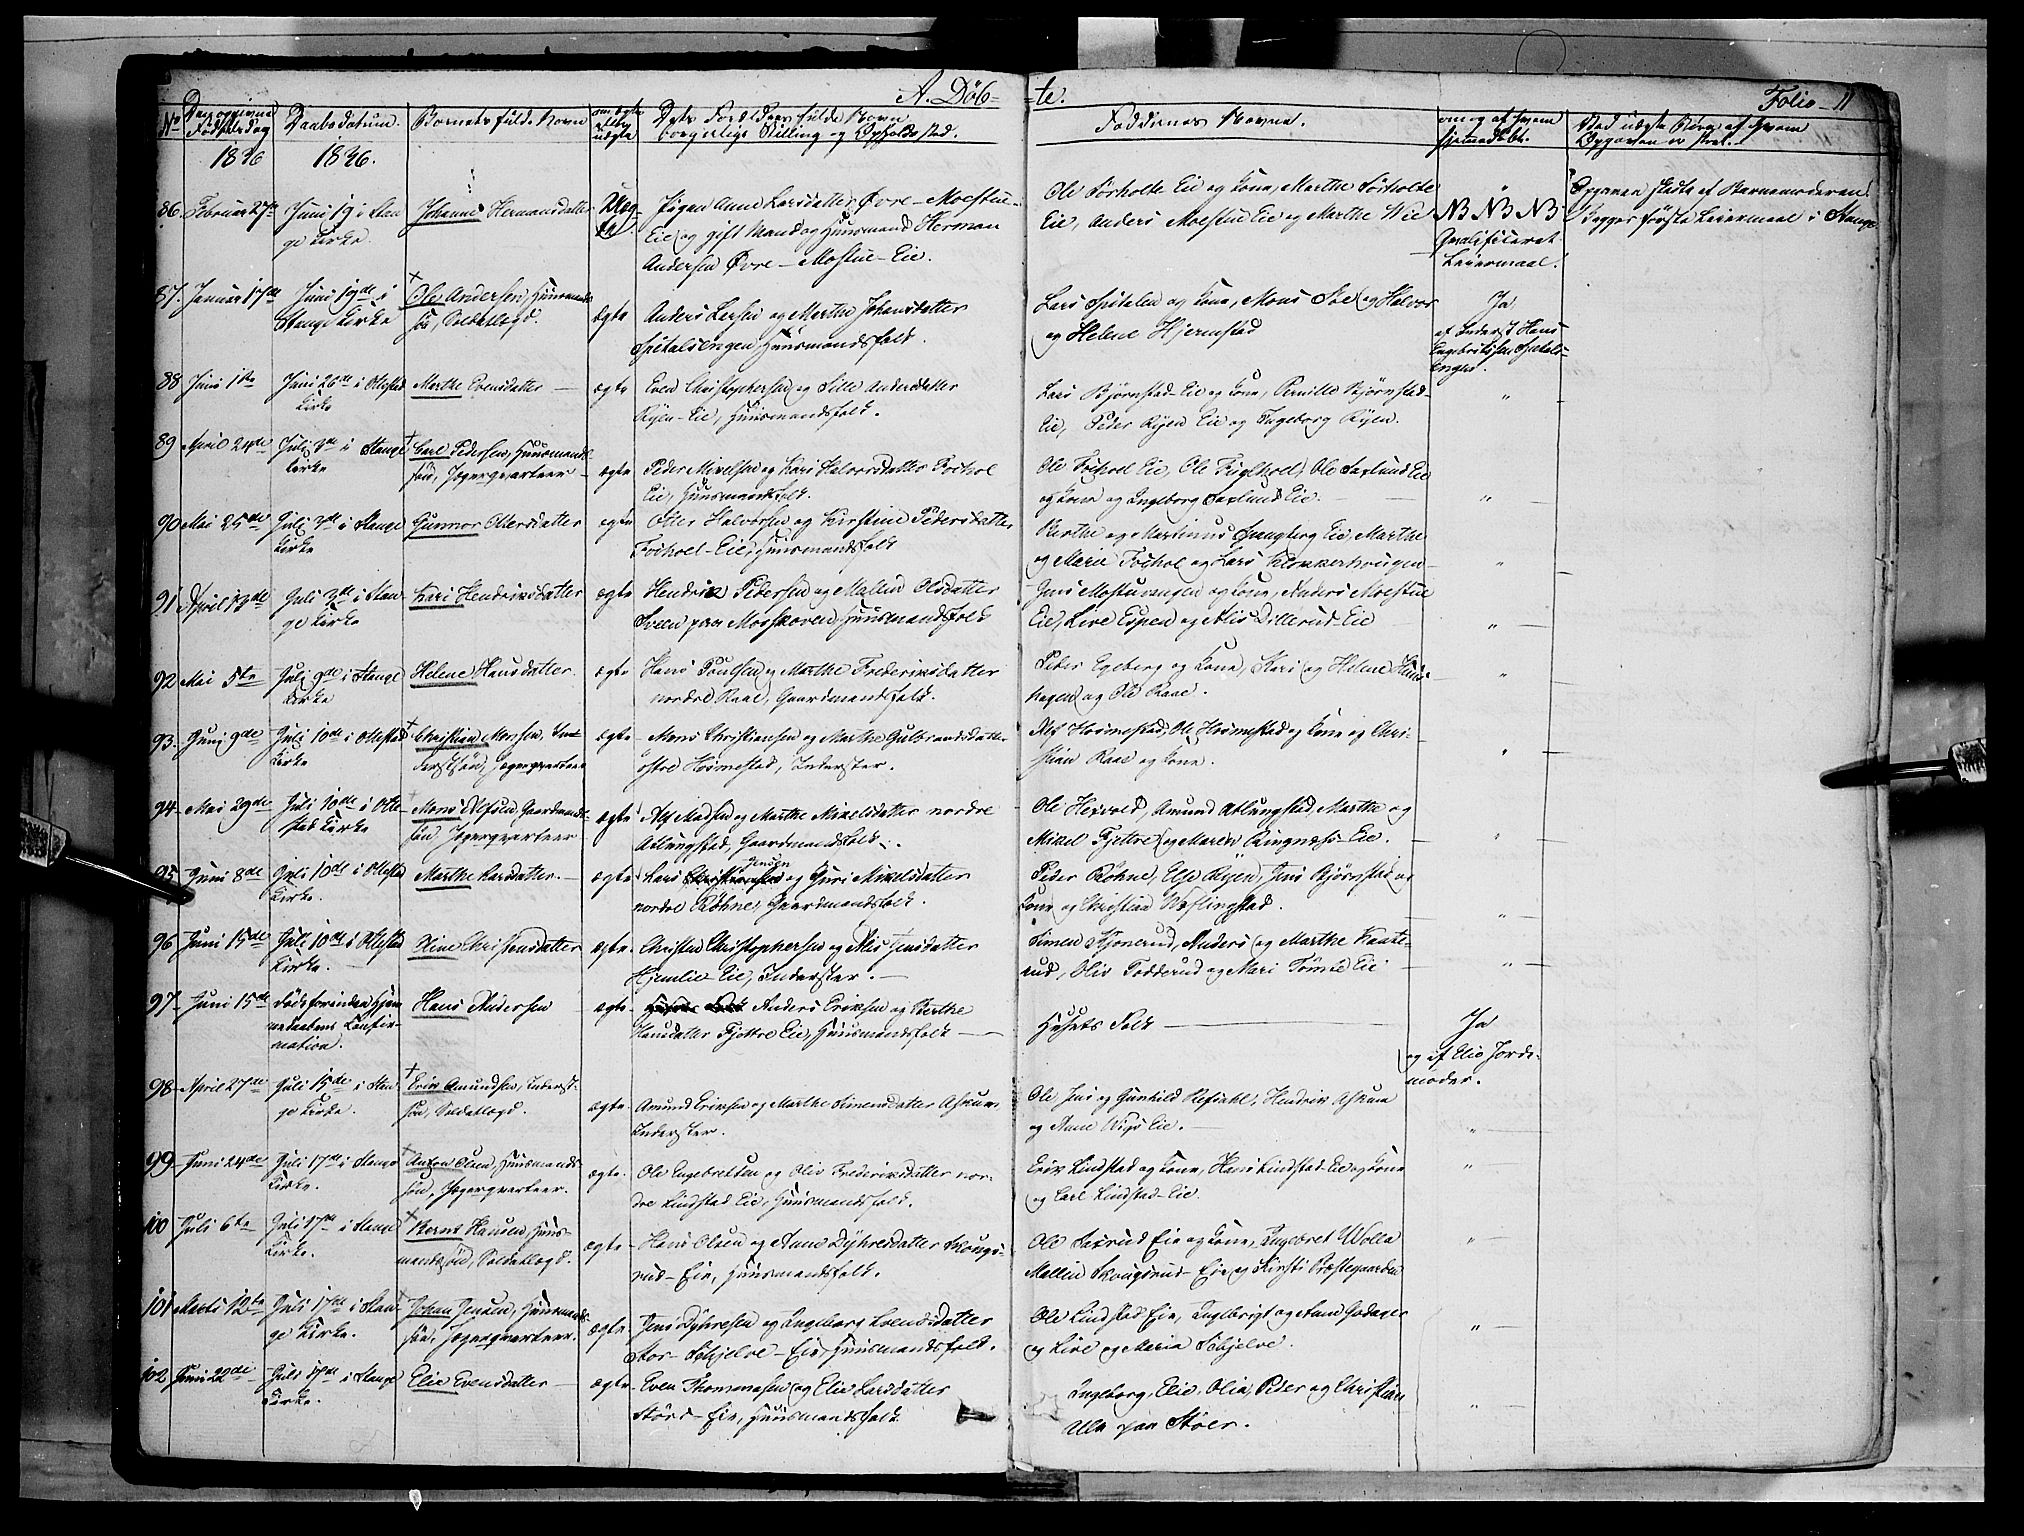 A. Døb-
te.
Folio 11
No
Dens opgivne
Fødselsdag
Daabsdatum.
Barnets fulde Navn
om ægte
eller
uægte
Dets Forældres fulde Navn
borgerlige Stilling og Opholdssted.
Faddernes Navne.
om og af hvem
hjemmedøbt.
Ved uægte Børn af hvem
Opgaven er skeet.
1836
1836.
86. Februar 27de
Juni 19 i Stan-
ge Kirke.
Johanne Hermansdatter
Uæg-
te
Pigen Anne Larsdatter Øvre-Moestue-
Eie og gift Mand og Huusmand Herman
Andersen Øvre-Mostue-Eie.
Ole Sørholte Eie og Kone, Marthe Sørholte
Eie, Anders Moestue Eie og Marthe Wie
NB NB NB
Qualificeret
Leiermaal.
Opgaven skedte af Barnemoderen
Begges første Leiermaal i Stange
87. Januar 17de
Juni 19de i
Stange Kirke
Ole Andersen, Huusmands-
søn, Soldatlægd.
ægte
Anders Larsen og Marthe Johansdatter
Spitalsengen, Huusmandsfolk.
Lars Spitalen og Kone, Mons Søe og Halvor
og Helene Hjermstad
Ja
af Inderst Hans
Engebretsen Spitals-
engen.
88 Juni 1ste
Juni 26de i Ottestad
Kirke
Marthe Evensdatter
ægte
Even Christophersen og Sille Andersdatter
Ryen-Eie, Huusmandsfolk.
Lars Bjørnstad-Eie og Kone, Pernille Bjørnstad-
Eie, Peder Ryen Eie og Ingeborg Ryen.
89 April 24de
Juli 3de i Stange
Kirke
Carl Pedersen, Huusmands-
søn, Jægerqvarteer
ægte
Peder Mikelsen og Kari Halvorsdatter Fokhol
Eie, Huusmandsfolk.
Ole Fokhol Eie, Ole Fuglhol, Ole Saxlund Eie
og Kone og Ingeborg Saxlund Eie.
90 Mai 25de
Juli 3de i Stange
Kirke
Gunnor Ottersdatter
ægte
Otter Halvorsen og Kirstine Pedersdatter
Fokhol-Eie, Huusmandsfolk
Berthe og Martinus Spangberg Eie, Marthe
og Marie Fokhol og Lars Klokkerhougen
91 April 13de
Juli 3de i Stan-
ge Kirke
Kari Hendriksdatter
ægte
Hendrik Pedersen og Mallene Olsdatter
Sveen paa Moeskoven, Huusmandsfolk
Jens Mostuvangen og Kone, Anders Moestue
Eie, Live Espen og Alis Dillerud-Eie
92 Mai 5te
Juli 9de i Stange
Kirke
Helene Hansdatter.
ægte
Hans Poulsen og Marthe Frederiksdatter
nordre Raae, Gaardmandsfolk.
Peder Egeberg og Kone, Kari og Helene
hagen og Ole Raae.
93. Juni 9de
Juli 10de i Ottestad
Kirke
Christian Monsen, In-
derstsøn, Jægerqvarteer
ægte
Mons Christiansen og Marthe Gulbrandsdatter
østre Hommestad, Inderster.
Alf Hommestad, Ole Hommestad og Kone og Chri-
stian Raae og Kone.
94. Mai 29de
Juli 10de i Otte-
stad Kirke
Mons Alfsen, Gaardmands-
søn, Jægerqvarteer
ægte
Alf Madsen og Marthe Mikelsdatter nordre
Atlungstad, Gaardmandsfolk.
Ole Hexvold, Amund Atlungstad, Marthe og
Mikel Fjettre og Maren Ringnæss-Eie.
95 Juni 8de
Juli 10de i Ottestad
Kirke.
Marthe Larsdatter.
ægte
Lars Christiansen Jensen og Guri Mikelsdatter
nordre Røhne, Gaardmandsfolk.
Peder Røhne, Else Ryen, Jens Bjørnstad og
Kone og Christian Wæflingstad.
96 Juni 15de
Juli 10de i Ottestad
Kirke.
Stine Christensdatter
ægte
Christen Christophersen og Alis Jensdatter
Hjemlie Eie, Inderster.
Simen Stjonerud, Anders og Marthe Kaate-
rud, Oliv Todderud og Mari Tomte Eie
97. Juni 15de
Døde forinden Hjem-
medaabens Confir-
mation.
Hans Andersen
ægte
Anders Eriksen og Berthe
Hansdatter Fjettre Eie, Huusmandsfolk
Husets Folk
Ja
og af Elie Jorde-
moder.
98 April 27de
Juli 15de i Stan-
ge Kirke.
Erik Amundsen, Inderst-
søn, Soldatlægd.
ægte
Amund Eriksen og Marthe Simensdatter Askum,
Inderster.
Ole Jens og Gunhild Refsahl, Hendrik Askum
og Anne Wigs Eie.
99 Juni 24de
Juli 17de i Stange
Kirke.
Anton Olsen, Huusmands-
søn, Jægerqvarteer.
ægte.
Ole Engebretsen og Oliv Frederiksdatter nor-
dre Lindstad Eie, Huusmandsfolk.
Erik Lindstad og Kone, Hans Lindstad-Eie og Kone
og Carl Lindstad-Eie.
100 Juli 6te
Juli 17de i Stange
Kirke.
Bernt Hansen, Huus-
mandssøn, Soldatlægd.
ægte
Hans Olsen og Anne Dyhresdatter Skougs-
rud-Eie, Huusmandsfolk.
Ole Saxrud Eie og Kone, Ingebret Wolla
Mallene Skougsrud-Eie og Kirsti Præstegaarden
101 Marts 12te
Juli 17de i Stan-
ge Kirke.
Johan Jensen, Huusmands-
søn, Jægerqvarteer.
ægte
Jens Dyhresen og Ingeborg Evensdatter
Stor-Schjelve-Eie, Huusmandsfolk.
Ole Lindstad Eie, Engebrigt og Anne Godager
og Live og Maria Schjelve.
102 Juni 22de
Juli 17de i Stange
Kirke.
Elie Evensdatter
ægte
Even Thommesen og Elie Larsdatter
Større-Eie, Huusmandsfolk
Ingeborg, Elie, Olia, Peder og Christian
Alle paa Støer.